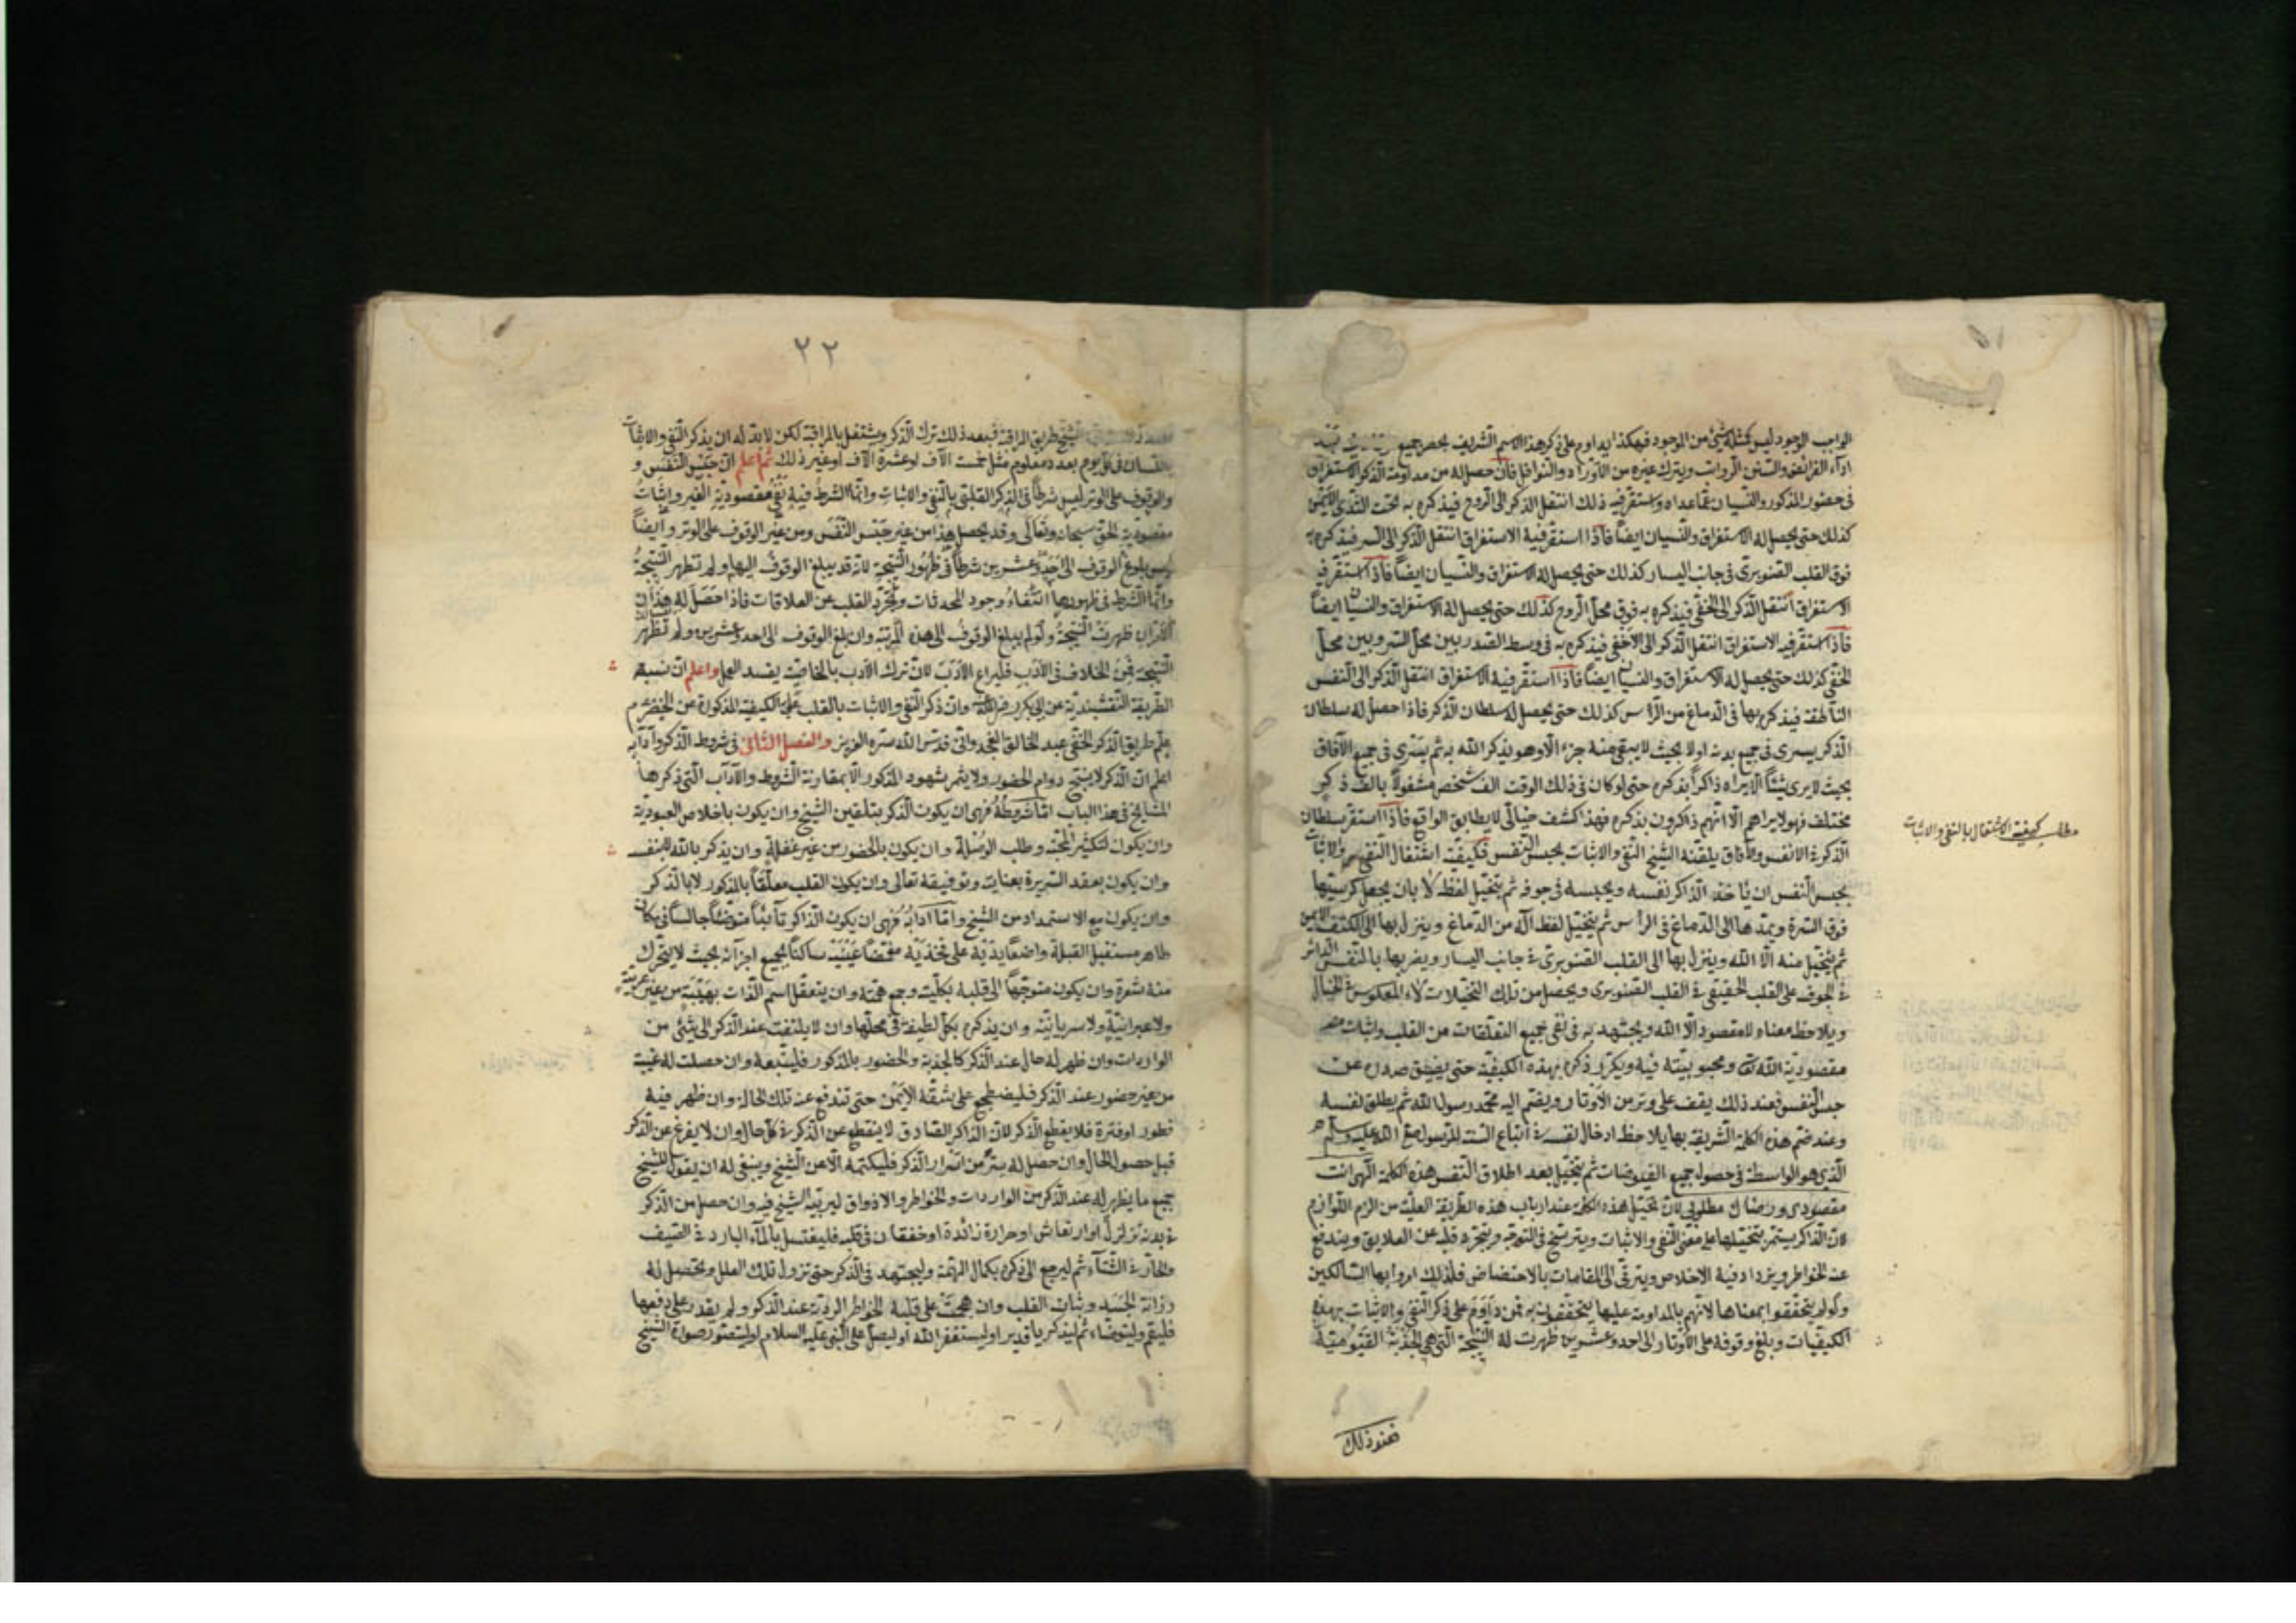 الواجب الوجود ليس كمثله شئ من الموجود فهكذا يداوم على ذكر هذا الاسم الشريف بحصر جميع
ادآء الفرائض والسنن الرواتب ويترك غيره من الاوراد والنوافل فان حصل له من مداومة الذكر الاستغراق
فى حضور المذكور والنسيان عما عداه واستقر فيه ذلك انتقل الذكر الى الروح فيذكره به تحت الثدى الايمن
كذلك حتى يحصل له الاستغراق والنسيان ايضاً فاذا استقر فيه الاستغراق انتقل الذكر الى السر فيذكره به
فوق القلب الصنوبرى فى جانب اليسار كذلك حتى يحصل له الاستغراق والنسيان ايضاً فاذا استقر فيه
الاستغراق انتقل الذكر الى الخفى فيذكره به فوق محل الروح كذلك حتى يحصل له الاستغراق والنسيان ايضاً
فاذا استقر فيه الاستغراق انتقل الذكر الى الاخفى فيذكره به فى وسط الصدر بين محل السر وبين محل
الخفى كذلك حتى يحصل له الاستغراق والنسيان ايضاً فاذا استقر فيه الاستغراق انتقل الذكر الى النفس
الناطقة فيذكره بها فى الدماغ من الرأس كذلك حتى يحصل له سلطان الذكر فاذا حصل له سلطان
الذكر يسرى فى جميع بدنه اولا بحيث لا يبقى منه جزء الا وهو يذكر الله به ثم يسرى فى جميع الآفاق
بحيث لا يرى شيئاً الا يراه ذاكراً بذكره حتى لو كان فى ذلك الوقت الف شخص مشغولاً بالف ذكر
مختلف فهو لا يراهم الا انهم ذاكرون بذكره فهذا كشف خيالى لا يطابق الواقع فاذا استقر سلطان
مطلب كيفية الاشتغال بالنفى والاثبات
الذكر فى الانفس والآفاق يلقنه الشيخ النفى والاثبات بحبس النفس فكيفية اشتغال النفى والاثبات
بحبس النفس ان ياخذ الذاكر نفسه ويحبسه فى جوفه ثم يتخيل لفظ لا بان يجعل كرسيها
فوق السرة ويمدها الى الدماغ فى الرأس ثم يتخيل لفظ اله من الدماغ وينزل بها الى الكتف الايمن
ثم يتخيل منه الا الله وينزل بها الى القلب الصنوبرى فى جانب اليسار ويضربها بالنفس الدائر
فى الجوف على القلب الحقيقى فى القلب الصنوبرى ويحصل من تلك التخيلات لاء المعكوس فى الخيال
ويلاحظ معناه لا مقصود الا الله ويجتهد به فى نفى جميع التعلقات من القلب واثبات
مقصودية الله ومحبوبيته فيه ويكرر ذكره بهذه الكيفية حتى يضيق صدره عن
حبس النفس فعند ذلك يقف على وتر من الاوتار ويضم اليه محمد رسول الله ثم يطلق نفسه
وعند ضم هذه الكلمة الشريفة بها يلاحظ ادخال نفسه فى اتباع السنة للرسول صلى الله عليه وسلم
الذى هو الواسطة فى حصول جميع الفيوضات ثم يتخيل بعد اطلاق النفس هذه الكلمة الهى انت
مقصودى ورضاك مطلوبى لان تخيل هذه الكلمة عند ارباب هذه الطريقة العلية من الزم اللوازم
لان الذاكر يستمر بتخيلها على معنى النفى والاثبات ويترسخ فى التوجه ويتجرد قلبه عن العلايق ويندفع
عنه الخواطر ويزداد فيه الاخلاص ويترقى الى المقامات بالاختصاص فلذلك امروا بها السالكين
ولو لم يتحققوا بمعناها لانهم بالمداومة عليها يتحققون به فمن داوم على ذكر النفى والاثبات بهذه
الكيفيات وبلغ وقوفه على الاوتار الى احد وعشرين ظهرت له النتيجة التى هى الجذبة القيومية
فعند ذلك
٢٢
الشيخ طريق المراقبة فبعد ذلك ترك الذكر ويشتغل بالمراقبة لكن لا بد له ان يذكر النفى والاثبات
باللسان فى كل يوم بعدد معلوم مثل خمسة آلاف او عشرة آلاف او غير ذلك ثم اعلم ان حبس النفس و
والوقوف على الوتر ليس شرطاً فى الذكر القلبى بالنفى والاثبات وانما الشرط فيه نفى مقصودية الغير واثبات
مقصودية الحق سبحانه وتعالى وقد يحصل هذا من غير حبس النفس ومن غير الوقوف على الوتر وايضاً
ليس بلوغ الوقوف الى احد وعشرين شرطاً فى ظهور النتيجة لانه قد يبلغ الوقوف اليها ولم تظهر النتيجة
وانما الشرط فى ظهورها انتفاء وجود المحدثات وتجرد القلب عن العلاقات فاذا حصل له هذان
الامران ظهرت النتيجة ولو لم يبلغ الوقوف الى هذه المرتبة وان بلغ الوقوف الى احد وعشرين ولم تظهر
النتيجة فمن الخلاف فى الادب فليراع الادب لان ترك الادب بالخاصية يفسد العمل واعلم ان نسبة
الطريقة النقشبندية عن ابى بكر رضى الله عنه وان ذكر النفى والاثبات بالقلب على الكيفية المذكورة عن الخضر عم
علم طريق الذكر الخفى عبد الخالق الغجدوانى قدس الله سره العزيز والفصل الثانى فى شروط الذكر وآدابه
اعلم ان الذكر لا ينتج دوام الحضور ولا يثمر شهود المذكور الا بمقارنة الشروط والآداب التى ذكرها
المشايخ فى هذا الباب اما شروطه فهى ان يكون الذكر بتلقين الشيخ وان يكون باخلاص العبودية
وان يكون لتكثير المحبة وطلب الوصلة وان يكون بالحضور من غير غفلة وان يذكر بالله لا بنفسه
وان يكون بعقد السريرة بعناية وتوفيقه تعالى وان يكون القلب معلقاً بالمذكور لا بالذكر
وان يكون مع الاستمداد من الشيخ واما آدابه فهى ان يكون الذاكر تائباً متوضئاً جالساً فى مكان
طاهر مستقبل القبلة واضعاً يديه على فخذيه مغمضاً عينيه ساكناً بجميع اجزائه بحيث لا يتحرك
منه شعرة وان يكون متوجهاً الى قلبه بكليته وجمع همته وان يتعقل اسم الذات بهيئته من غير عربية
ولا عبرانية ولا سريانية وان يذكره بكل لطيفة فى محلها وان لا يلتفت عند الذكر الى شئ من
الواردات وان ظهر له حال عند الذكر كالجذبة والحضور بالمذكور فليتبعه وان حصلت له غيبة
من غير حضور عند الذكر فليضطجع على شقه الايمن حتى تندفع عنه تلك الحالة وان ظهر فيه
فطور او فترة فلا يقطع الذكر لان الذاكر الصادق لا ينقطع عن الذكر فى كل حال وان لا يفرغ عن الذكر
قبل حصول الحال وان حصل له سر من اسرار الذكر فليكتمه الا عن الشيخ وينبغى له ان يقول للشيخ
جميع ما يظهر له عند الذكر من الواردات والخواطر والاذواق ليربيه الشيخ فيه وان حصل من الذكر
فى بدنه تزلزل او ارتعاش او حرارة زائدة او خفقان فى قلبه فليغتسل بالمآء البارد فى الصيف
والحار فى الشتآء ثم ليرجع الى ذكره بكمال الهمة وليجتهد فى الذكر حتى تزول تلك العلل ويحصل له
رزانة الجسد وثبات القلب وان هجمت على قلبه الخواطر الردية عند الذكر ولم يقدر على دفعها
فليقم وليتوضاء ثم ليذكر يا قدير او ليستغفر الله او ليصل على النبى عليه السلام او ليتصور صورة الشيخ